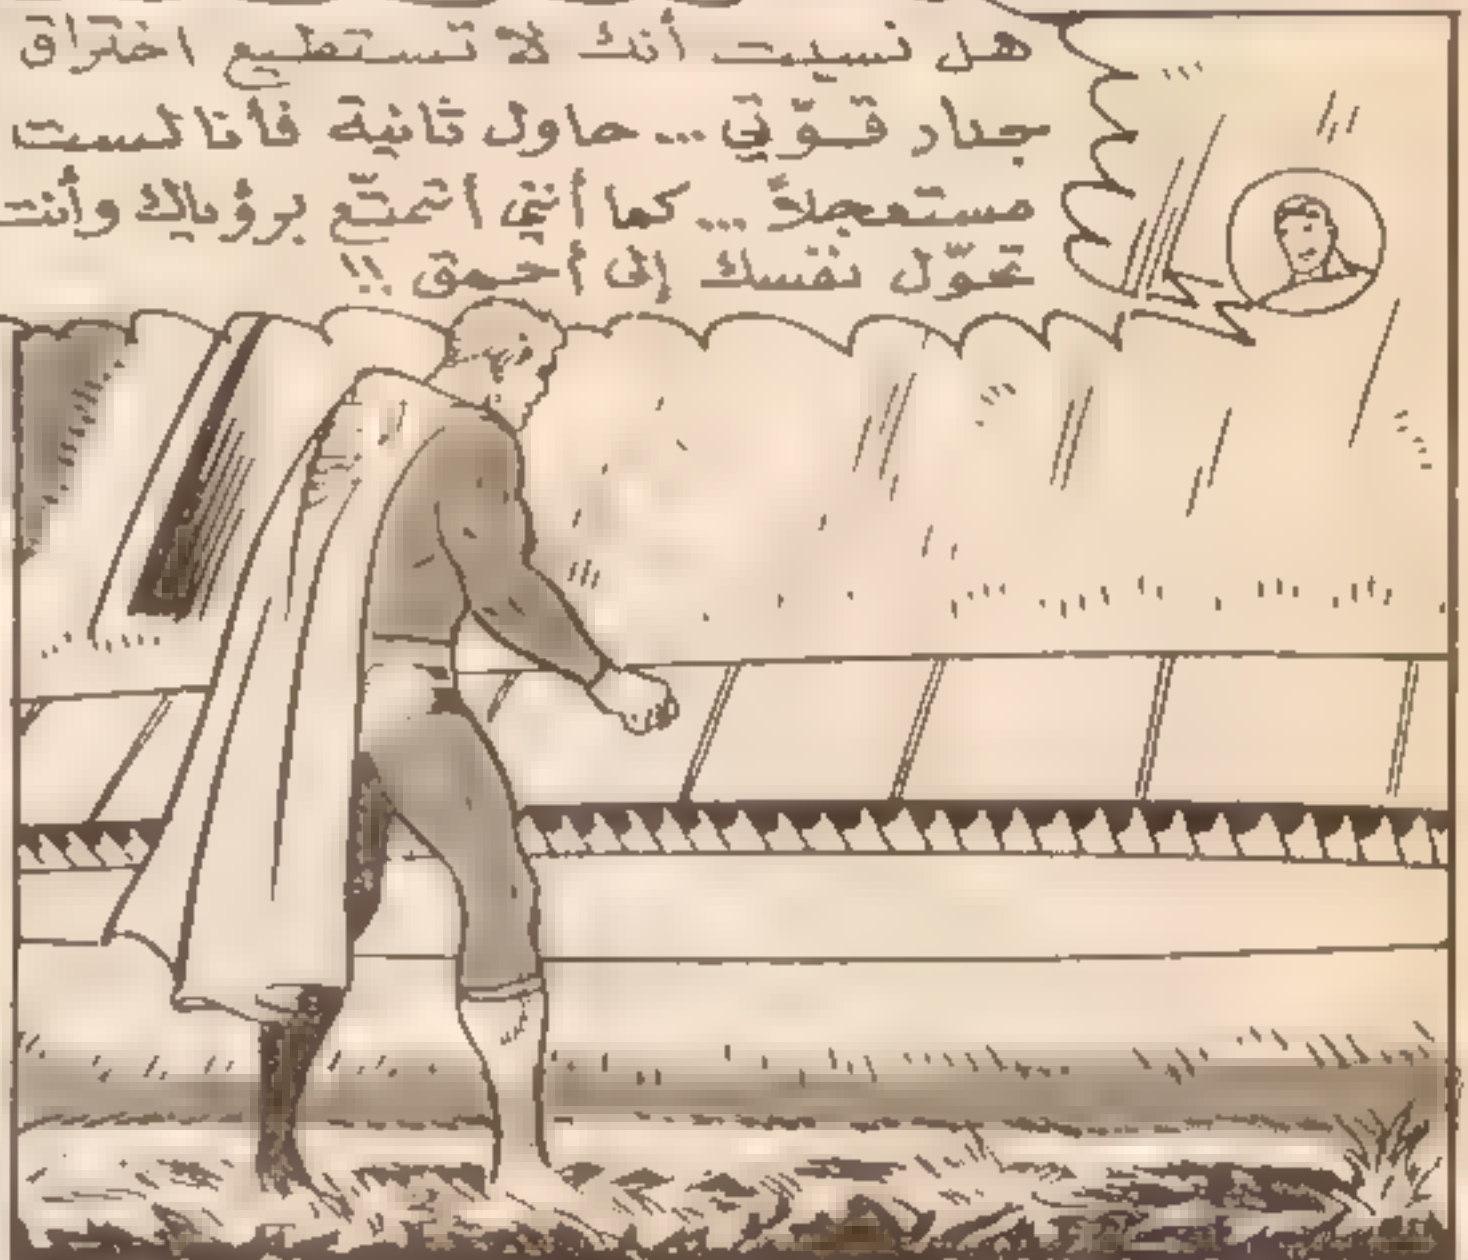 هل نسيت أنك لا تستطيع اختراق
جدار قوّتي ... حاول ثانية فأنا لست
مستعجلاً ... كما أنني أتمتّع برؤياك وأنت
تحوّل نفسك إلى أحمق !!